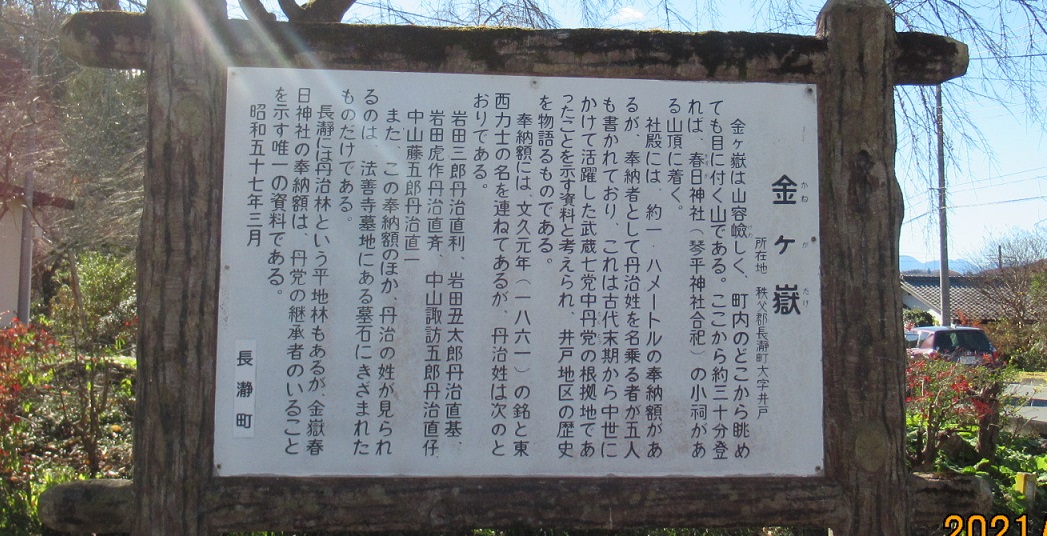 金ヶ嶽
かねがたけ
所在地 秩父郡長瀞町大字井戸
金ヶ嶽は山容嶮しく、町内のどこから眺め
ても目に付く山である。ここから約三十分登
れば、春日神社（琴平神社合祀）の小祠があ
る山頂に着く。
社殿には、約一・八メートルの奉納額があ
るが、奉納者として丹治姓を名乗る者が五人
も書かれており、これは古代末期から中世に
かけて活躍した武蔵七党中丹党の根拠地であ
ったことを示す資料と考えられ、井戸地区の歴史
を物語るものである。
奉納額には、文久元年（一八六一）の銘と東
西力士の名を連ねてあるが、丹治姓は次のと
おりである。
岩田三郎丹治直利、岩田丑太郎丹治直基、
岩田虎作丹治直斉、中山諏訪五郎丹治直仔
中山藤五郎丹治直一
また、この奉納額のほか、丹治の姓が見られ
るのは、法善寺墓地にある墓石にきざまれた
ものだけである。
長瀞には丹治林という平地林もあるが、金嶽春
日神社の奉納額は、丹党の継承者のいること
を示す唯一の資料である。
昭和五十七年三月
長瀞町
2021/